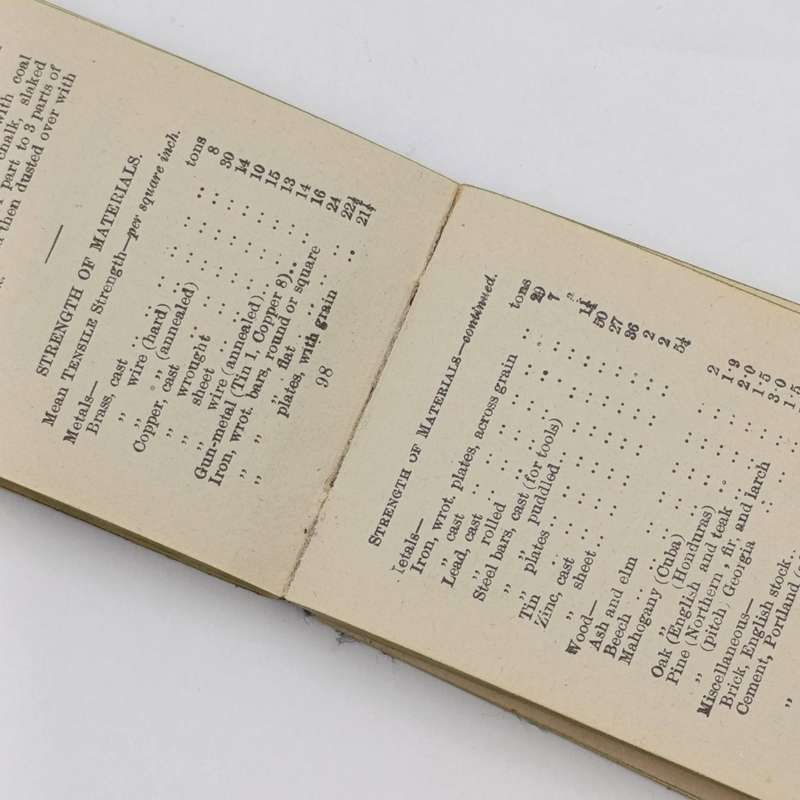 with coal
chalk, slaked
part to 3 parts of
then dusted over with
STRENGTH OF MATERIALS.
Mean TENSILE Strength—per square inch.
Metals— tons
Brass, cast .. .. .. 8
,, wire (hard) .. .. 30
,, ,, (annealed) .. .. 14
Copper, cast .. .. .. 10
,, wrought .. .. 15
,, sheet .. .. .. 13
,, wire (annealed) .. .. 14
Gun-metal (Tin 1, Copper 8).. .. 16
Iron, wrot. bars, round or square 24
,, ,, flat .. .. 22½
,, ,, plates, with grain .. 21½
98
STRENGTH OF MATERIALS—continued.
Metals— tons
Iron, wrot. plates, across grain
,, cast .. .. .. 7
Lead, cast .. .. ..
,, rolled .. .. .. 1½
Steel bars, cast (for tools) .. 50
,, ,, puddled .. .. 27
,, plates .. .. .. 36
Tin .. .. .. 2
Zinc, cast .. .. .. 2
,, sheet .. .. .. 5¼
Wood—
Ash and elm .. .. 2
Beech .. .. .. 1·9
Mahogany (Cuba) .. .. 2·0
,, (Honduras) .. .. 1·5
Oak (English and teak .. 3·0
Pine (Northern, fir, and larch 1·5
,, (pitch) Georgia ..
Miscellaneous—
Brick, English stock..
Cement, Portland
,,